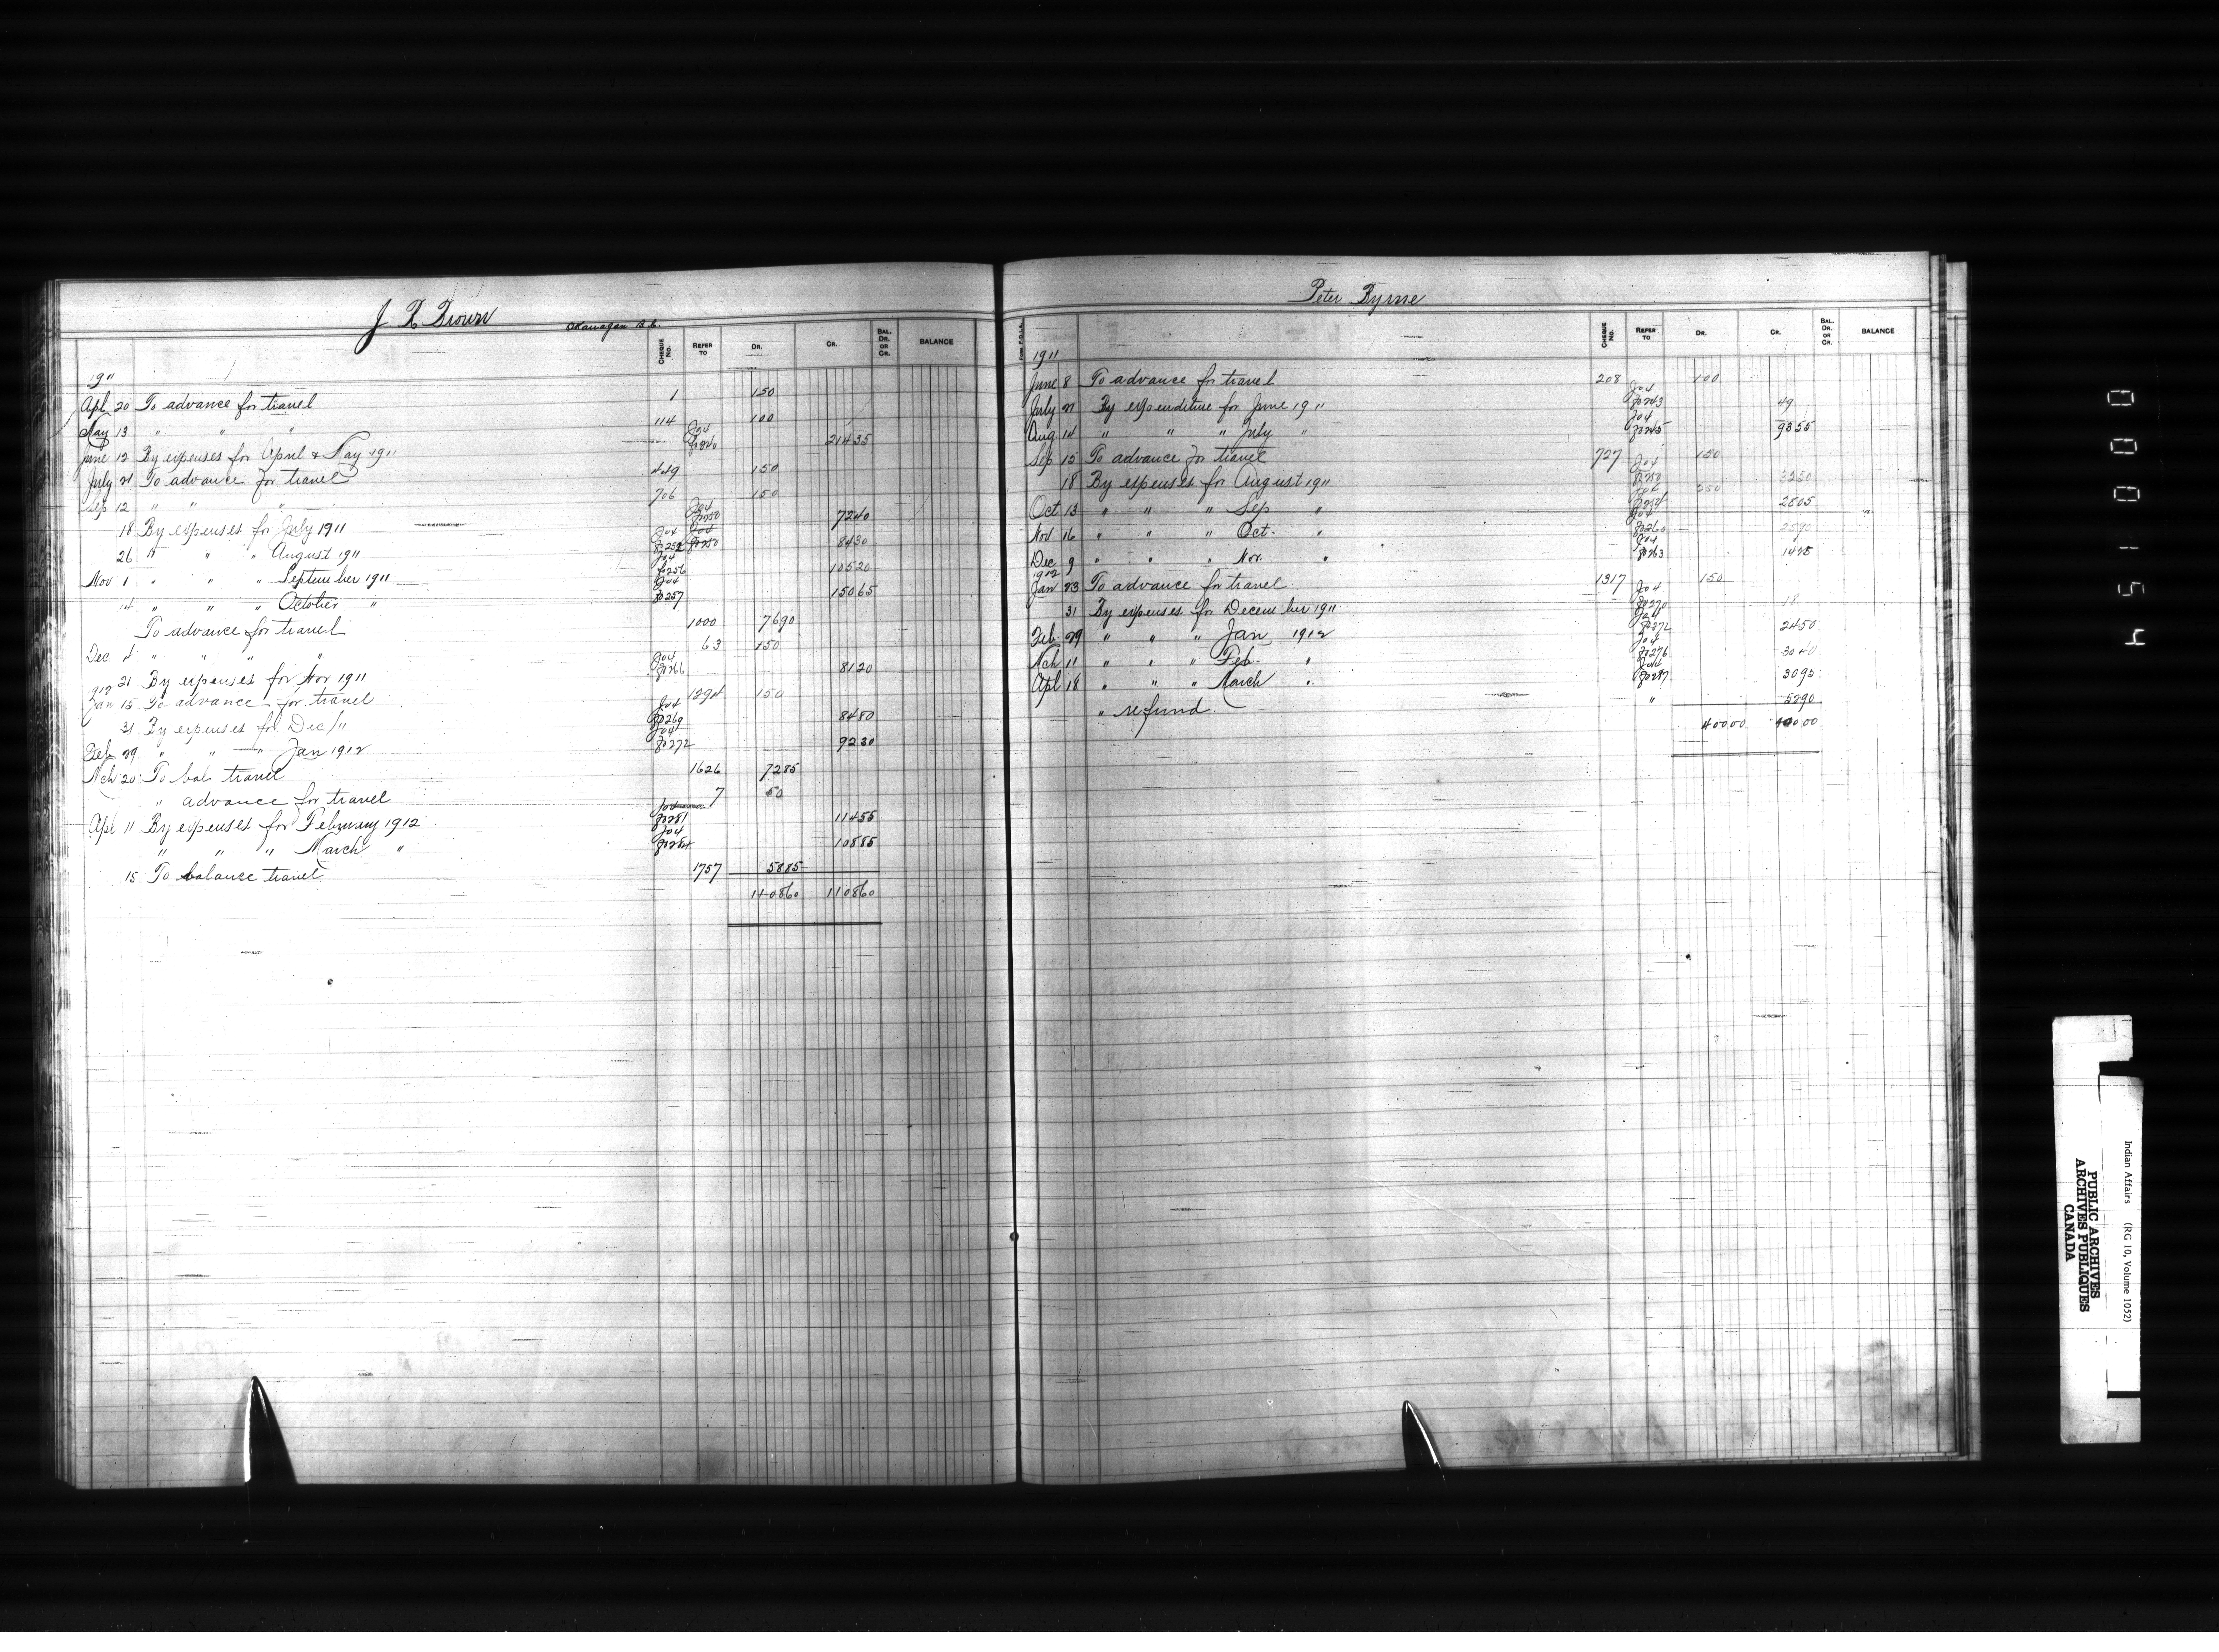 J R Brown
Okanagan B.C.
CHEQUE No. REFER TO DR. CR. BAL. DR. OR CR. BALANCE
1911
Apl 20 To advance for travel 1 150
May 13 " " " 114 100
June 12 By expenses for April & May 1911 J04 21435
July 21 To advance for travel 449 150
Sep 12 " " " 706 150
18 By expenses for July 1911 J04 Fo250 7240
26 " " " August 1911 J04 Fo252 8430
Nov 1 " " " September 1911 J04 Fo256 10520
14 " " " October " J04 Fo257 15065
To advance for travel 1000 7690
Dec 4 " " " " 63 150
21 By expenses for Nov 1911 J04 Fo266 8120
1912
Jan 15 To advance for travel 1294 150
31 By expenses for Dec/11 J04 Fo269 8480
Feb 29 " " " Jan 1912 J04 Fo272 9230
Mch 20 To bal travel 1626 7285
" advance for travel 7 50
Apl 11 By expenses for February 1912 J04 Fo281 11455
" " " March " J04 Fo284 10885
15 To balance travel 1757 5885
110860 110860
Peter Byrne
CHEQUE No. REFER TO DR. CR. BAL. DR. OR CR. BALANCE
1911
June 8 To advance for travel 208 100
July 21 By expenditure for June 1911 J04 Fo243 49
Aug 14 " " " July " J04 Fo245 9355
Sep 15 To advance for travel 727 150
18 By expenses for August 1911 J04 Fo250 3250
Oct 13 " " " Sep " J04 Fo254 2805
Nov 16 " " " Oct. " J04 Fo260 2590
Dec 9 " " " Nov. " J04 Fo263 1425
1912
Jan 23 To advance for travel 1317 150
31 By expenses for December 1911 J04 Fo270 18
Feb 29 " " " Jan 1912 J04 Fo272 2450
Mch 11 " " " Feb. " J04 Fo276 3040
Apl 18 " " " March " J04 Fo287 3095
" refund. " 5290
40000 40000
000154
Indian Affairs (RG 10, Volume 1052)
PUBLIC ARCHIVES
ARCHIVES PUBLIQUES
CANADA